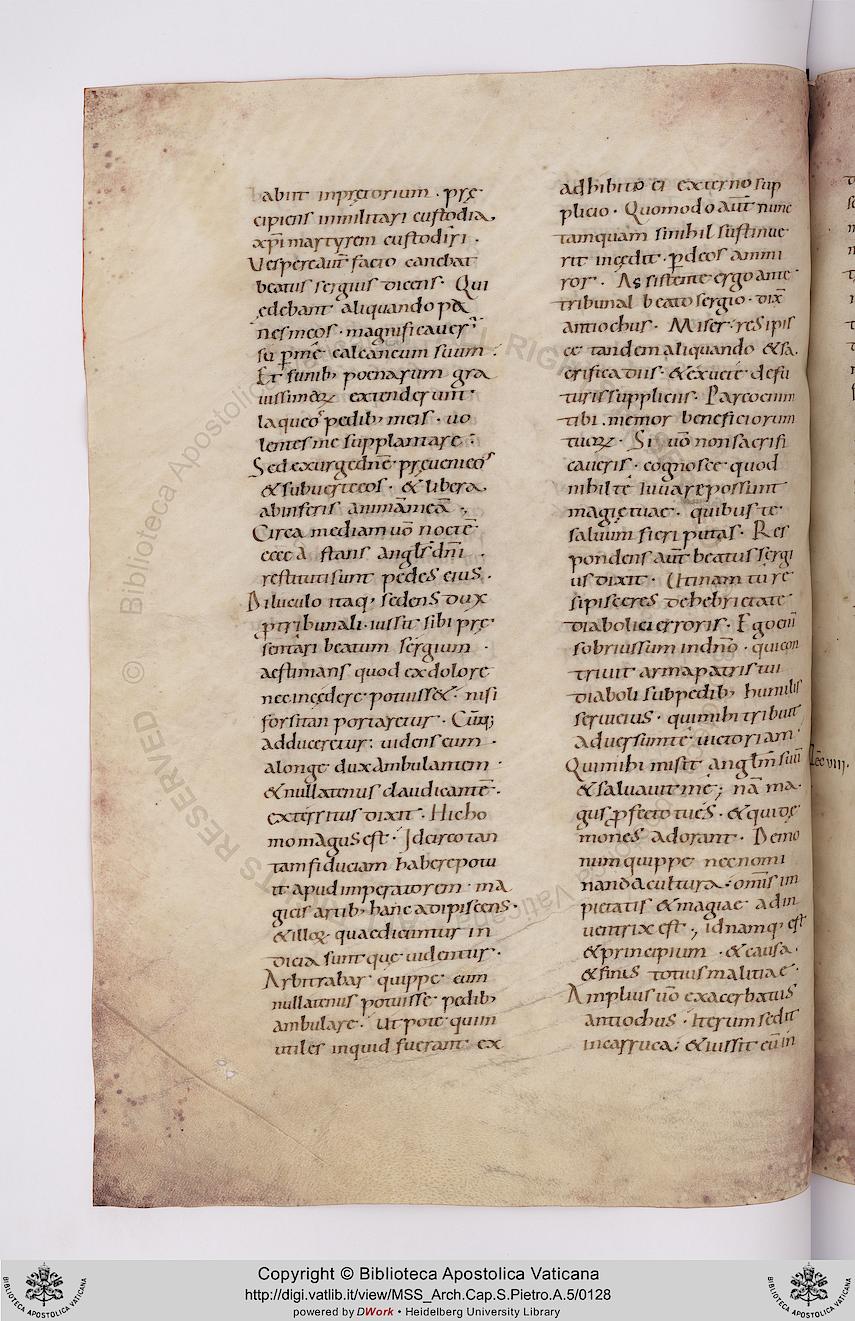 abitur inpretorium . prę
cipiens inmilitari custodia,
a xp̄i martyrem custodiri .
Vespere aut̄ facto canebat
beatus sergius dicens . Qui
edebant aliquando pa
nes meos . magnificauer̄
su p̄ me calcaneum suum .
Et funib; poenarum gra
uissimaꝝ extenderunt
laqueos pedib; meis . uo
lentes me supplantare .
Sed exurge dn̄e preueni eos
& subuerte eos . & libera
ab inferis animā meā .
Circa mediam uō noctē
ecce astans angl̄s dn̄i .
restituti sunt pedes eius .
Diluculo itaq; sedens dux
ꝓ tribunali . iussit sibi prę
sentari beatum sergium .
aestimans quod ex dolore
nec incędere potuiss& . nisi
forsitan portaretur . Cūq;
adduceretur : uidens eum .
a longe dux ambulantem .
& nullatenus claudicantē .
exterritus dixit . Hic ho
mo magus est . Idcirco tan
tam fiduciam habere potu
it apud imperatorem . ma
gicis artib; hanc adipiscens .
& illoꝝ quae dicuntur in
dicia sunt que uidentur .
Arbitrabar quippe eum
nullatenus potuisse pedib;
ambulare . Ut pote qum
utiles inquid fuerant ex
adhibito ei externo sup
plicio . Quomodo aut̄ nunc
tamquam si nihil sustinue
rit incędit . p̄ deos ammi
ror . Assistente ergo ante
tribunal beato sergio . dix̄
antiochus . Miser . resipis
ce tandem aliquando & sa
crifica diis . & exuere de fu
turis suppliciis . Parco enim
tibi . memor beneficiorum
tuoꝝ . Si uō non sacrifi
caueris . cognosce quod
nihil te iuuare possunt
magię tuae . quibus te
saluum fieri putas . Res
pondens aut̄ beatus sergi
us dixit . Utinam tu re
sipisceres de hebrietate
diabolici erroris . Ego enī
sobrius sum in dn̄o . qui con
triuit arma patris tui
diaboli sub pedib; humilis
serui eius . qui mihi tribuit
aduersum te uictoriam .
Qui mihi misit angl̄m suū
& saluauit me ; nā ma
gus ꝓfecto tu es . & qui dę
mones adorant . Demo
num quippe nec nomi
nanda cultura . om̄is im
pietatis & magiae adin
uentrix est ; id namq; est
& principium . & causa .
& finis totius malitiae .
Amplius uō exacerbatus
antiochus . iterum sedit
in carruca ; & iussit eū in
Lec̄ viii.
Copyright © Biblioteca Apostolica Vaticana
http://digi.vatlib.it/view/MSS_Arch.Cap.S.Pietro.A.5/0128
powered by DWork • Heidelberg University Library